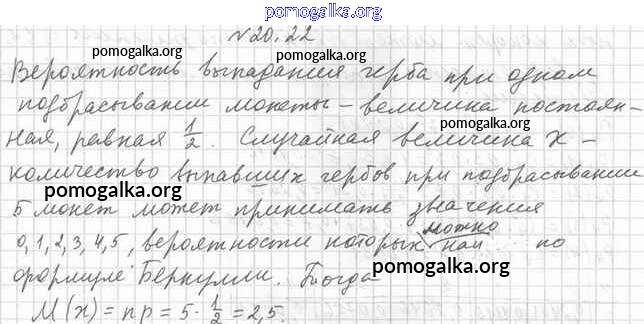 pomogalka.org
№20.22
pomogalka.org pomogalka.org
Вероятность выпадания герба при одном
подбрасывании монеты – величина постоян-
ная, равная 1/2. Случайная величина X –
pomogalka.org
количество выпавших гербов при подбрасывании
pomogalka.org
5 монет может принимать значения
можно
0, 1, 2, 3, 4, 5, вероятности которых най... по
формуле Бернулли. Тогда
pomogalka.org
M(x) = np = 5 · 1/2 = 2,5.